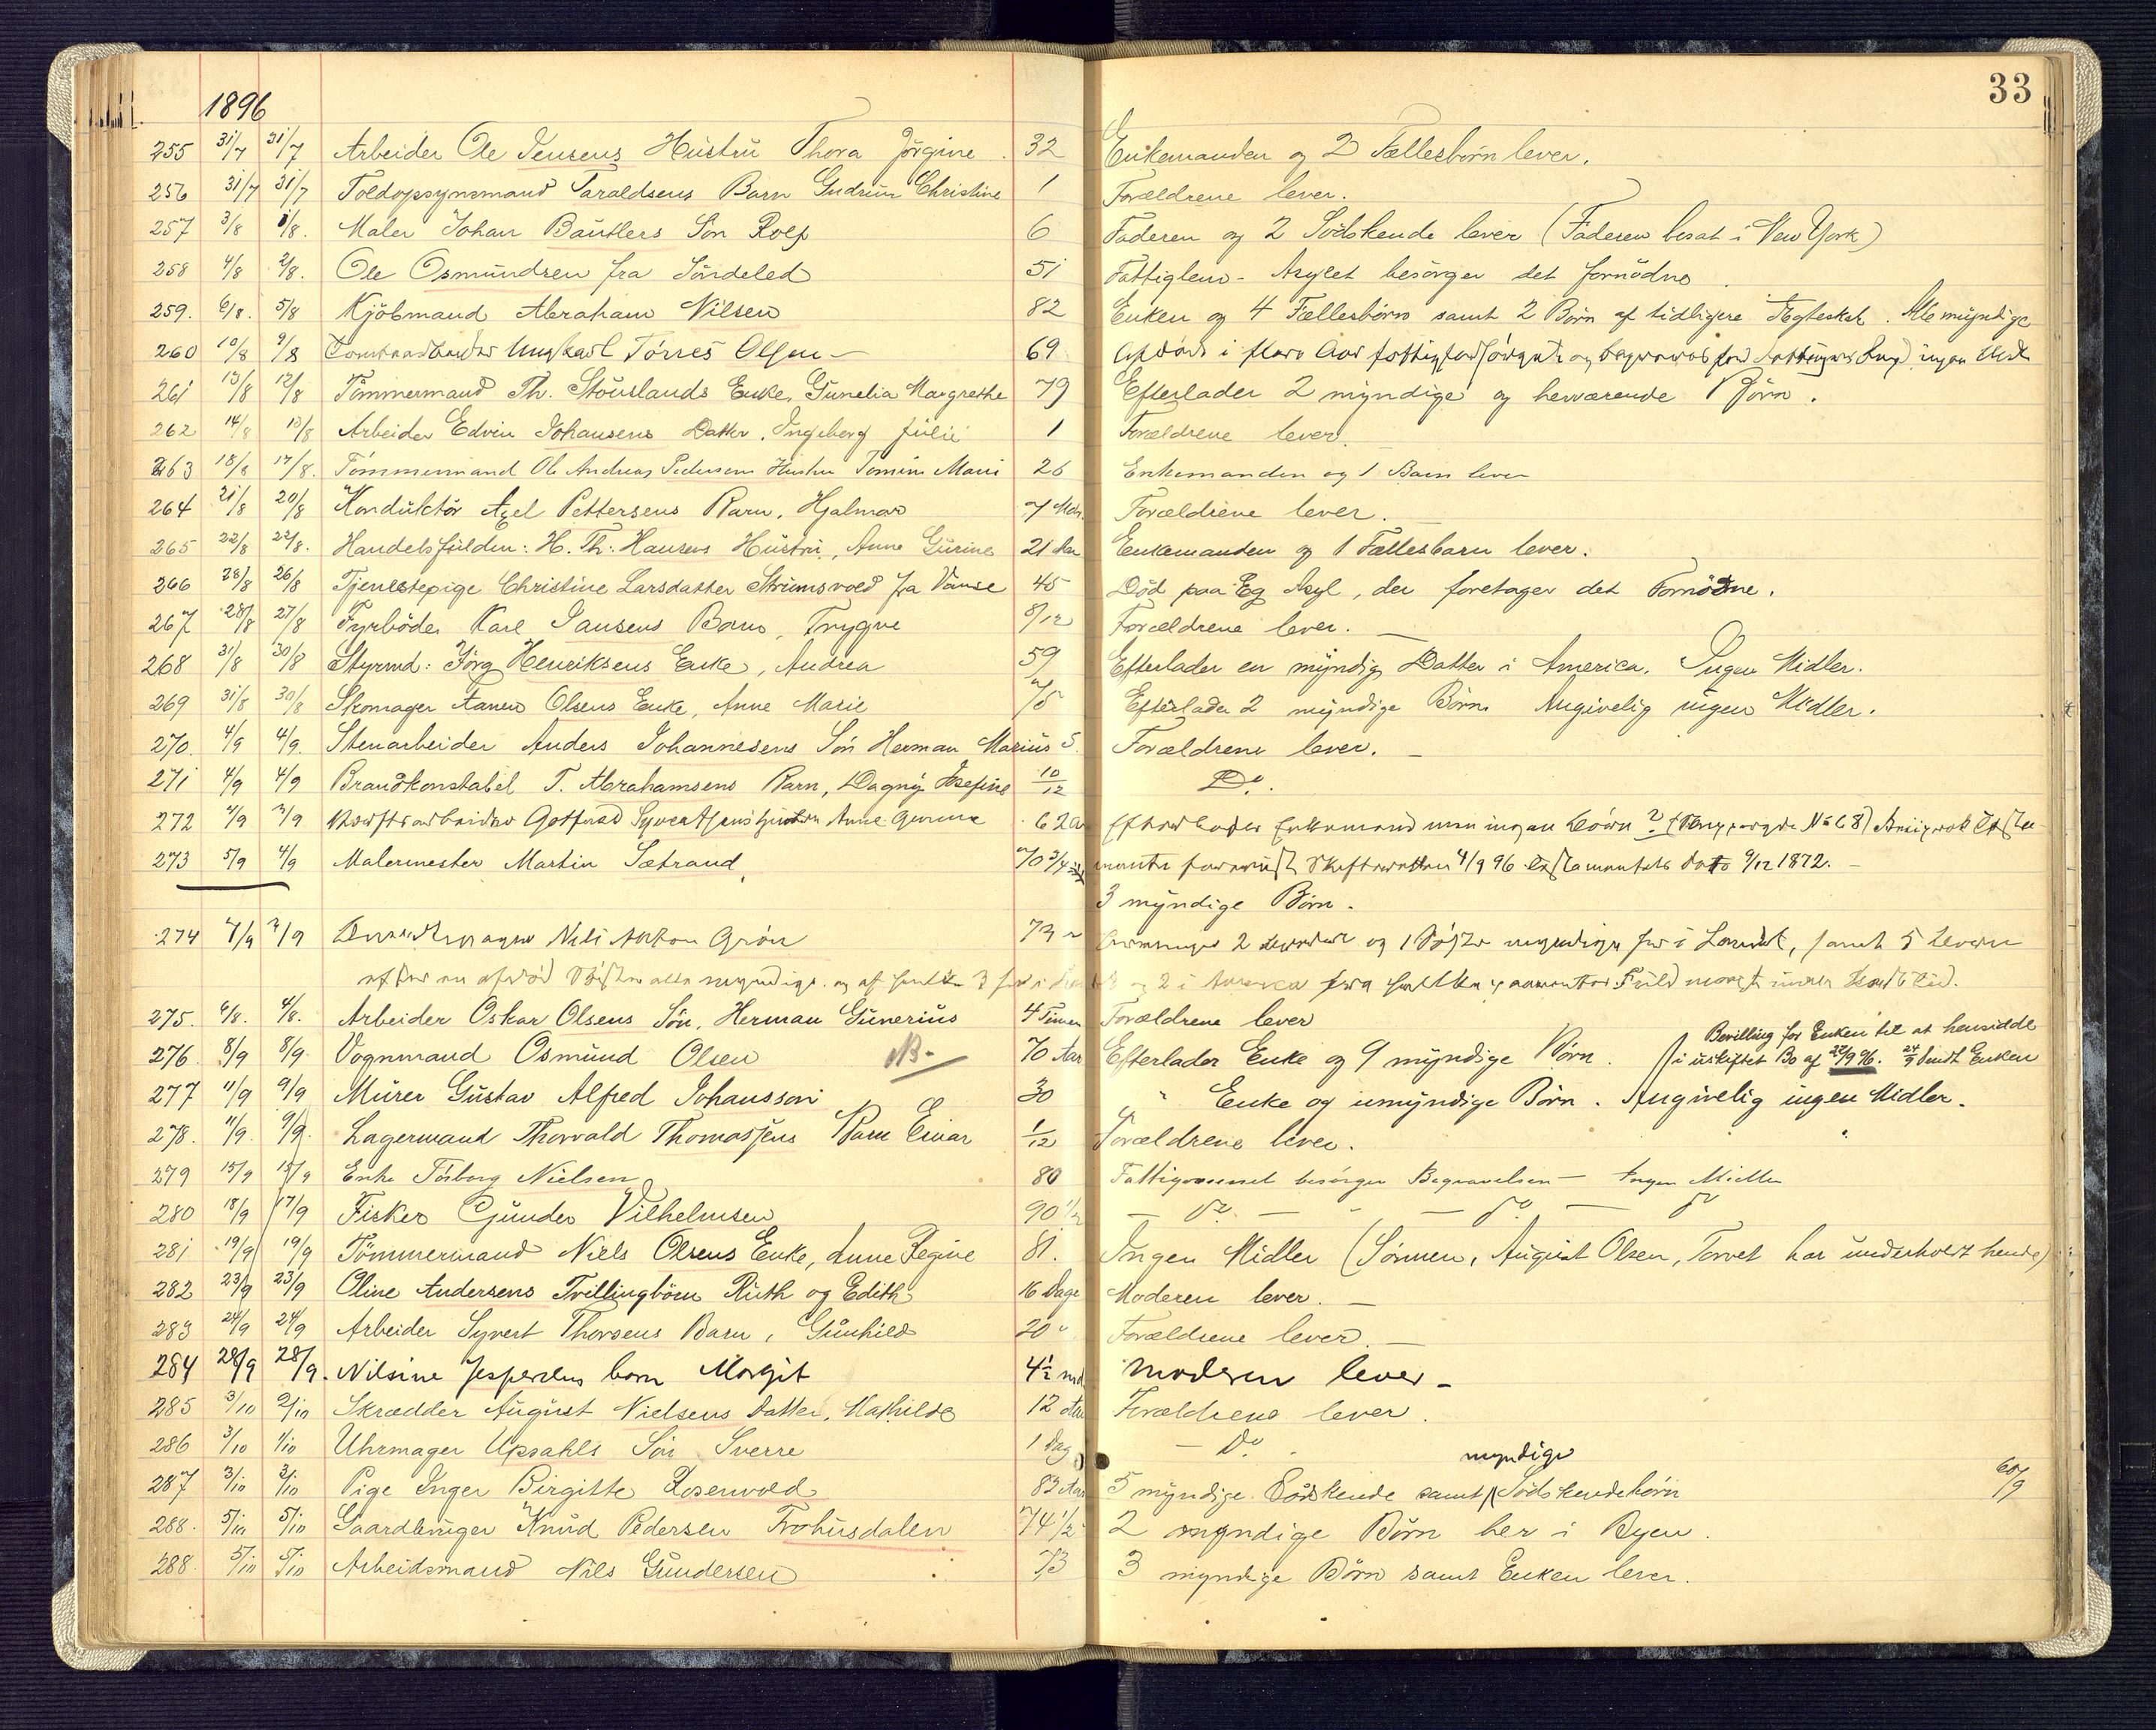 33
1896
255 31/7 31/7 Arbeider Ole Jensens Hustru Thora Jörgine. 32 Enkemanden og 2 Fællesbörn lever.
256 31/7 31/7 Toldopsynsmand Taraldsens Barn Gudrun Christine 1 Forældrene lever.
257 3/8 1/8. Maler Johan Bäutlers Sön Rolf 6 Faderen og 2 Södskende lever (Faderen bosat i New York)
258 4/8 2/8. Ole Osmundsen fra Söndeled 51 Fattiglem - Asylet besörger det fornödne.
259. 6/8. 5/8 Kjöbmand Abraham Nilsen 82 Enken og 4 Fællesbörn samt 2 Börn af tidligere Ægteskab. Alle myndige
260 10/8 9/8 Ungkarl Törres Olsen - 69 i flere Aar og ingen
261 13/8 12/8 Tömmermand Th. Stouslands Enke, Gunelia Margrethe 79 Efterlader 2 myndige og herværende Börn.
262 14/8 13/8 Arbeider Edvin Johansens Datter, Ingeborg Julie 1 Forældrene lever.
263 18/8 17/8. Tömmermand Ole Andreas Pedersens Hustru Tomine Marie 26 Enkemanden og 1 Barn lever
264 21/8 20/8 Konduktör Axel Pettersens Barn, Hjalmar 7 Mdr. Forældrene lever.
265 22/8 22/8. Handelsfuldm: H. Th: Hansens Hustru, Anne Gurine 21 Aar Enkemanden og 1 Fællesbarn lever.
266 28/8 26/8 Tjenestepige Christine Larsdatter Strumsvold fra Vanse 45 Död paa Eg Asyl, der foretager det Fornödne.
267 28/8 27/8 Fyrböder Karl Jansens Barn, Trygve 8/12 Forældrene lever. -
268 31/8 30/8 Styrmd: Jörg Henriksens Enke, Andrea 59 Efterlader en myndig Datter i America. Ingen Midler.
269 31/8 30/8 Skomager Aanen Olsens Enke, Anne Marie 75 Efterlader 2 myndige Börn. Angivelig ingen Midler.
270. 4/9 4/9. Stenarbeider Anders Johannesens Sön Herman Marius 5. Forældrene lever. -
271 4/9 4/9 Brandkonstabel T. Abrahamsens Barn, Dagny Josefine 10/12 Do.
272 4/9 3/9 Gotfred Syvertsens Hustru Anne Gurine 62 Aar Efterlader Enkemand men ingen Börn ? No 68)
273 5/9 4/9 Malermester Martin Sætrand 70 3/4 Skifteretten 4/9 96 Testamentets dato 9/12 1872. -
3 myndige Börn.
274 7/9 7/9 Nils Anton Grön 73 2 og 1 Söster myndige her i Landet, samt 5
efter en afdöd Söster alle myndige og af 3 her i og 2 i America
275. 6/8. 4/8. Arbeider Oskar Olsens Sön, Herman Gunerius 4 Timer Forældrene lever
276. 8/9 8/9. Vognmand Osmund Olsen NB- 70 Aar Efterlader Enke og 9 myndige Börn. Bevilling for Enken til at hensidde
i uskiftet Bo af 22/9 96. 24/9 sendt Enken
277 11/9 9/9 Murer Gustav Alfred Johansson 30 " Enke og umyndige Börn. Angivelig ingen Midler.
278. 11/9. 9/9. Lagermand Thorvald Thomassens Barn Einar 1/12 Forældrene lever.
279 15/9 15/9 Enke Torborg Nielsen 80 Fattigvæsenet besörger Begravelsen - Ingen Midler
280 18/9 17/9 Fisker Gunder Vilhelmsen 90 1/2 - Do. - - Do. - Do
281 19/9 19/9 Tömmermand Niels Olsens Enke, Anne Regine 81. Ingen Midler (Sönnen, August Olsen, Torvet har underholdt hende)
282 23/9 23/9 Oline Andersens Tvillingbörn Ruth og Edith 16 Dage Moderen lever. -
283 24/9 24/9 Arbeider Syvert Thorsens Barn, Gunhild 20 " Forældrene lever. -
284 28/9 28/9. Nilsine Jespersens barn Margit 4 1/2 md Moderen lever -
285 3/10 2/10 Skrædder August Nielsens Datter, Mathilde 12 Aar Forældrene lever.
286 3/10 1/10 Uhrmager Upsahls Sön Sverre 1 Dag - Do.
287 3/10 3/10 Pige Inger Birgitte Rosenvold 83 Aar 5 myndige Södskende samt myndige Södskendebörn
288. 5/10 5/10 Gaardbruger Knud Pedersen Frohusdalen 74 1/2 2 myndige Börn her i Byen.
288. 5/10 5/10 Arbeidsmand Nils Gundersen 73 3 myndige Börn samt Enken lever.